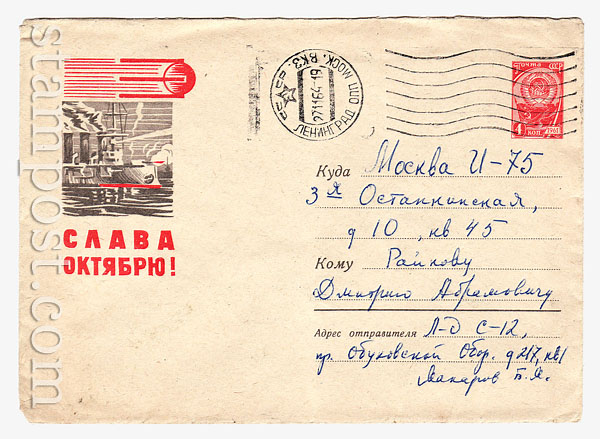 stampost.com
Почта СССР
4 КОП. 1961
СССР
ЛЕНИНГРАД ОПП МОСК. ВКЗ.
271164-19
СЛАВА
ОКТЯБРЮ!
Куда Москва И-75
3я Останкинская,
д 10, кв 45
Кому Райкову
Дмитрию Абрамовичу
Адрес отправителя Л-д С-12,
пр. Обуховской Обор. д 217, кв 1
Макаров Б.Я.